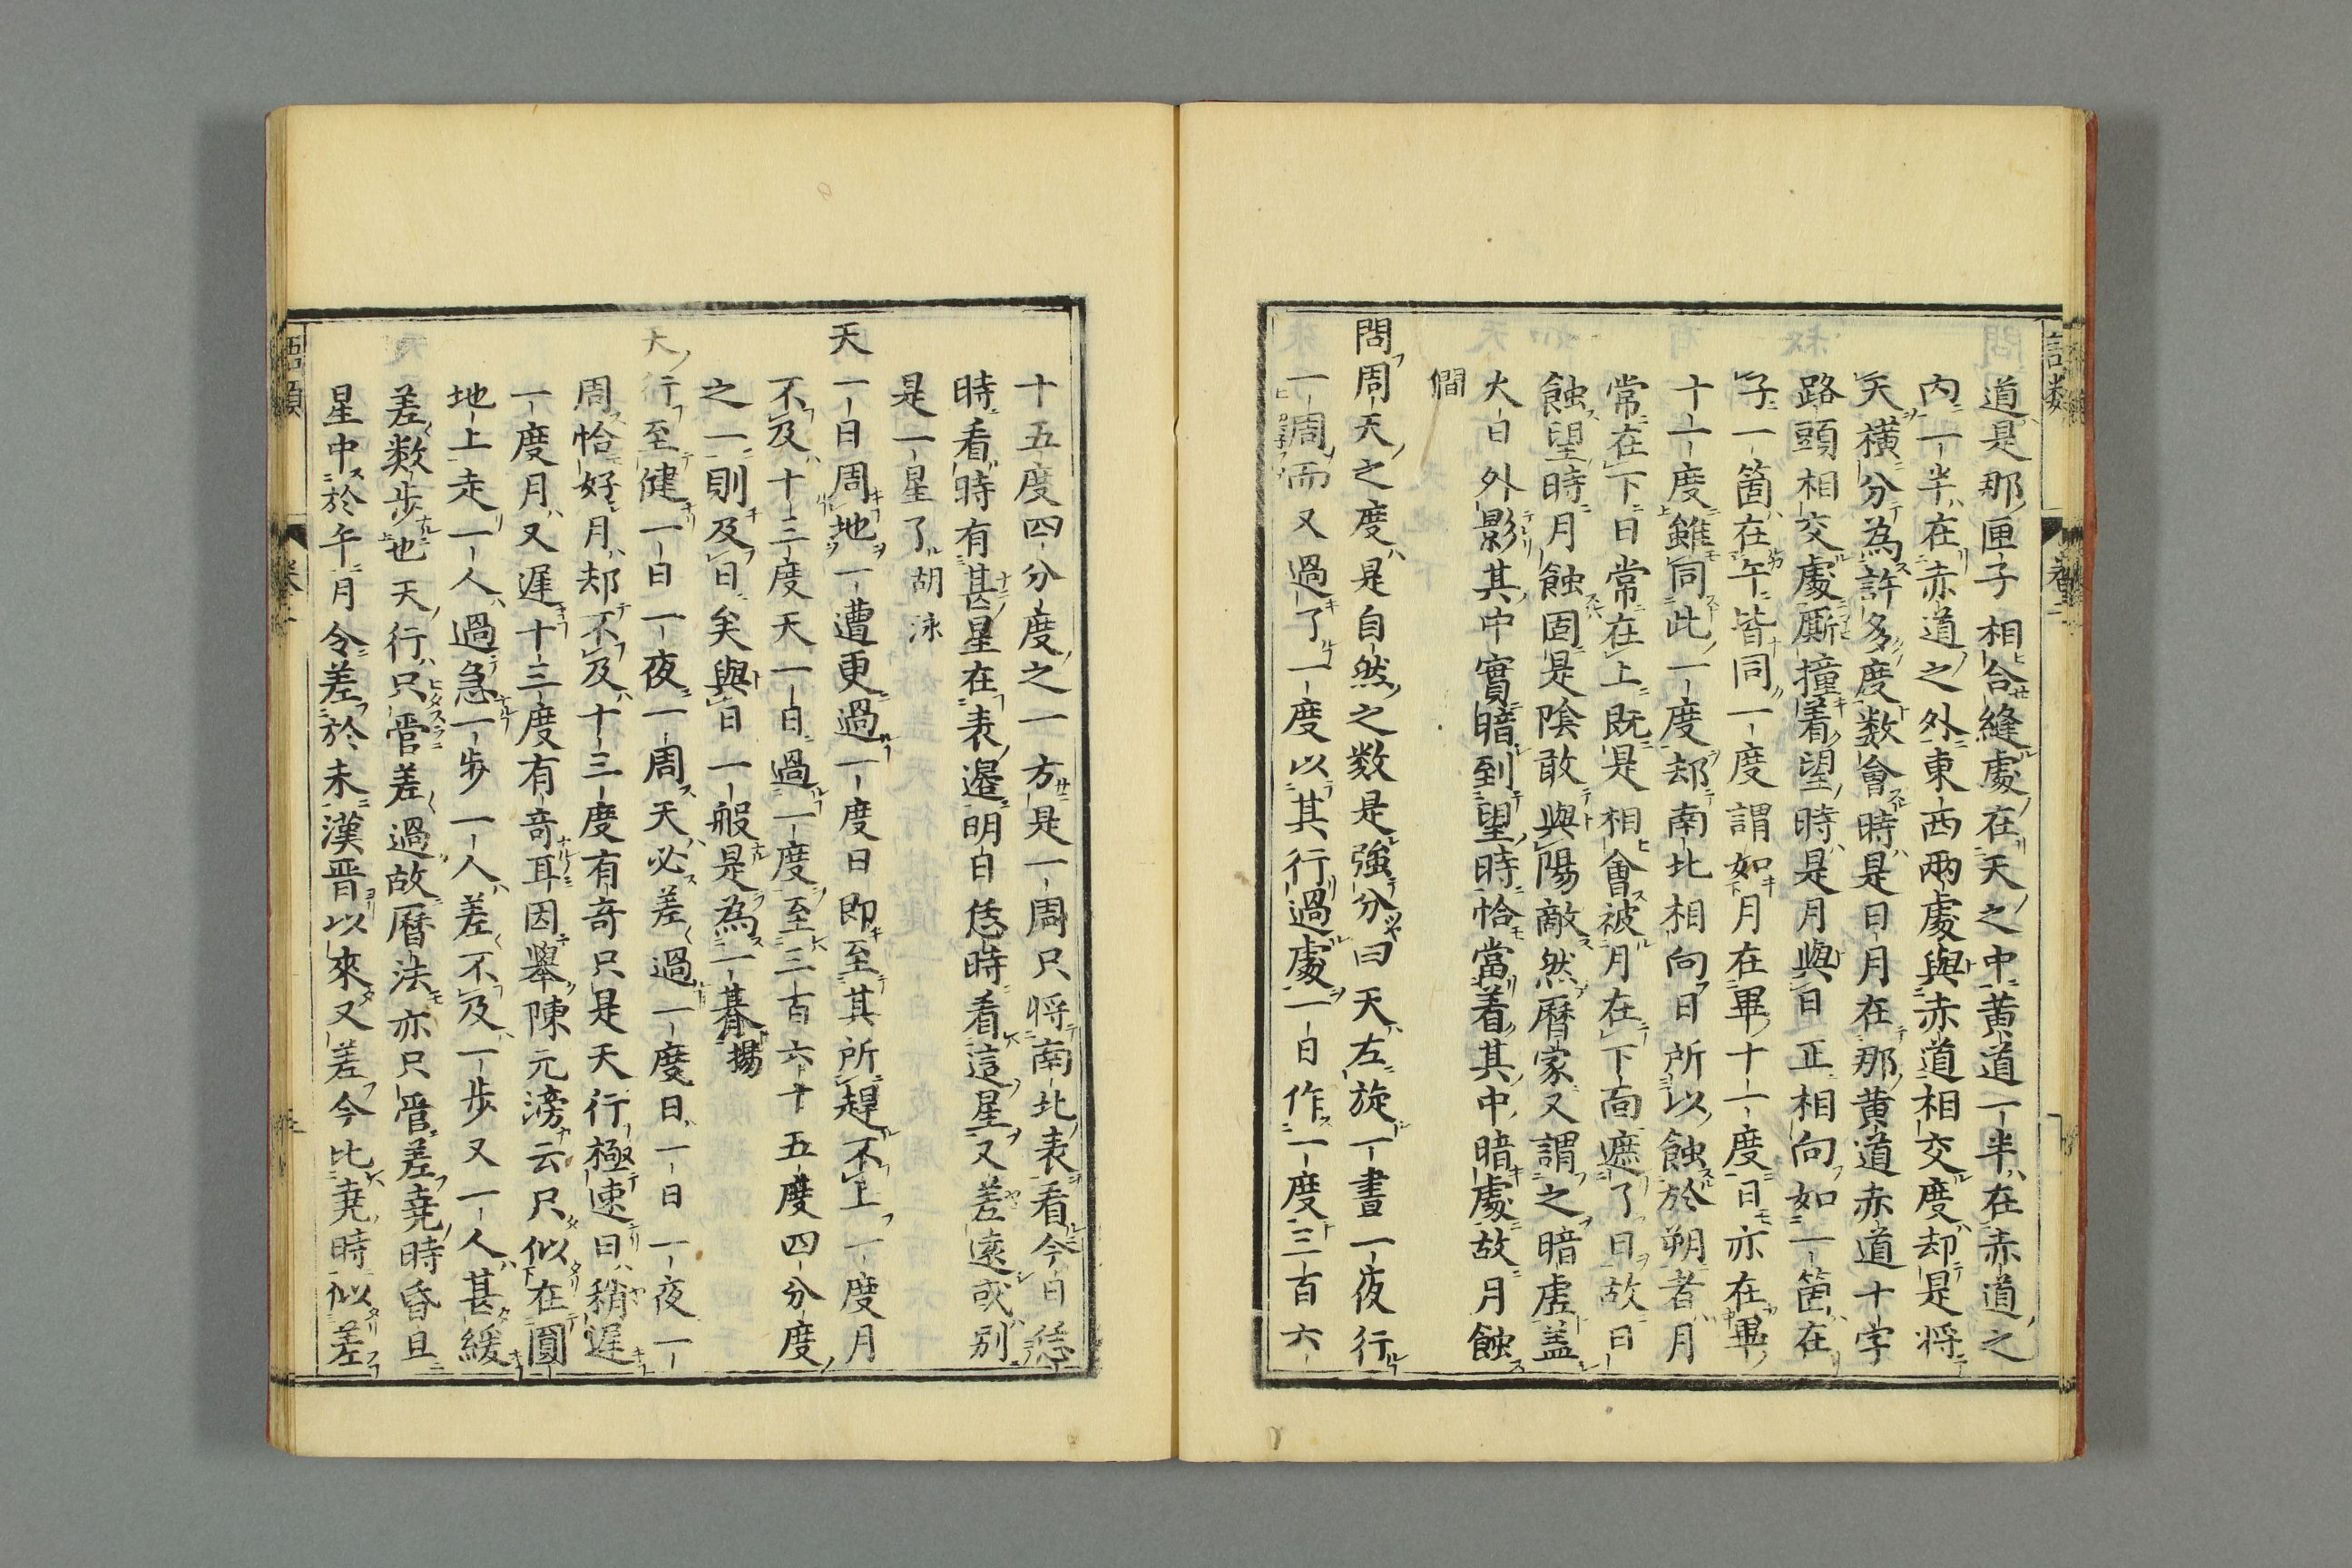 道是那匣子相合縫處在天之中黄道一半在赤道之
内一半在赤道之外東西兩處與赤道相交度却是将
天横分為許多度数會時是日月在那黄道赤道十字
路頭相交處厮撞着望時是月與日正相向如一箇在
子一箇在午皆同一度謂如月在畢十一度日亦在畢
十一度雖同此一度却南北相向日所以蝕於朔者月
常在下日常在上既是相會被月在下面遮了日故日
蝕望時月蝕固是陰敢與陽敵然曆家又謂之暗虚盖
火日外影其中實暗到望時恰當着其中暗處故月蝕
僴
問周天之度是自然之数是強分曰天左旋一晝一夜行
一周而又過了一度以其行過處一日作一度三百六
十五度四分度之一方是一周只将南北表看今日恁
時看時有甚星在表邉明日恁時看這星又差遠或别
是一星了胡泳
天一日周地一遭更過一度日即至其所趕不上一度月
不及十三度天一日過一度至三百六十五度四分度
之一則及日矣與日一般是為一朞揚
天行至健一日一夜一周天必差過一度日一日一夜一
周恰好月却不及十三度有竒只是天行極速日稍遲
一度月又遲十三度有竒耳因舉陳元滂云只似在圓
地上走一人過急一歩一人差不及一歩又一人甚緩
差数歩也天行只管差過故曆法亦只管差堯時昏旦
星中於午月令差於未漢晋以來又差今比堯時似差
語類